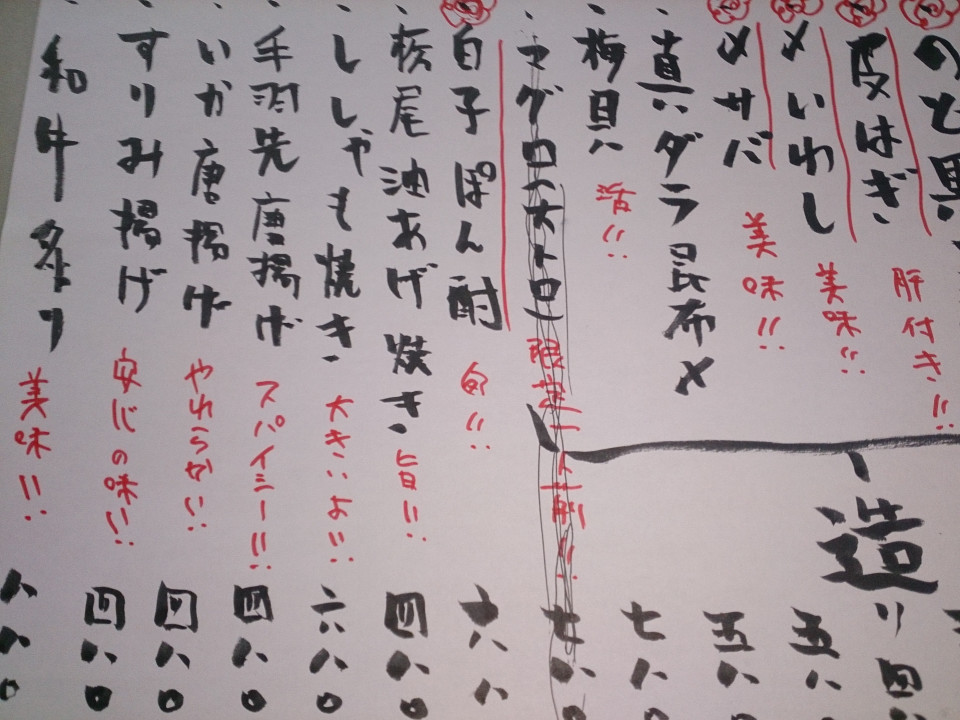 皮はぎ 肝付き!!
〆いわし 美味!! 五八
〆サバ 美味!! 五八
真ダラ昆布〆 七八
梅貝 活!!
マグロ(大トロ) 限定一人前!! 七八〇
白子ぽん酢 旬!! 六八
栃尾油あげ焼き 旨!! 四八〇
ししゃも焼き 大きいよ!! 六八〇
手羽先唐揚げ スパイシー!! 四八〇
いか唐揚げ やわらかい!! 四八〇
すりみ揚げ 安心の味!! 四八〇
和牛タタキ 美味!! 八八〇
造り 四